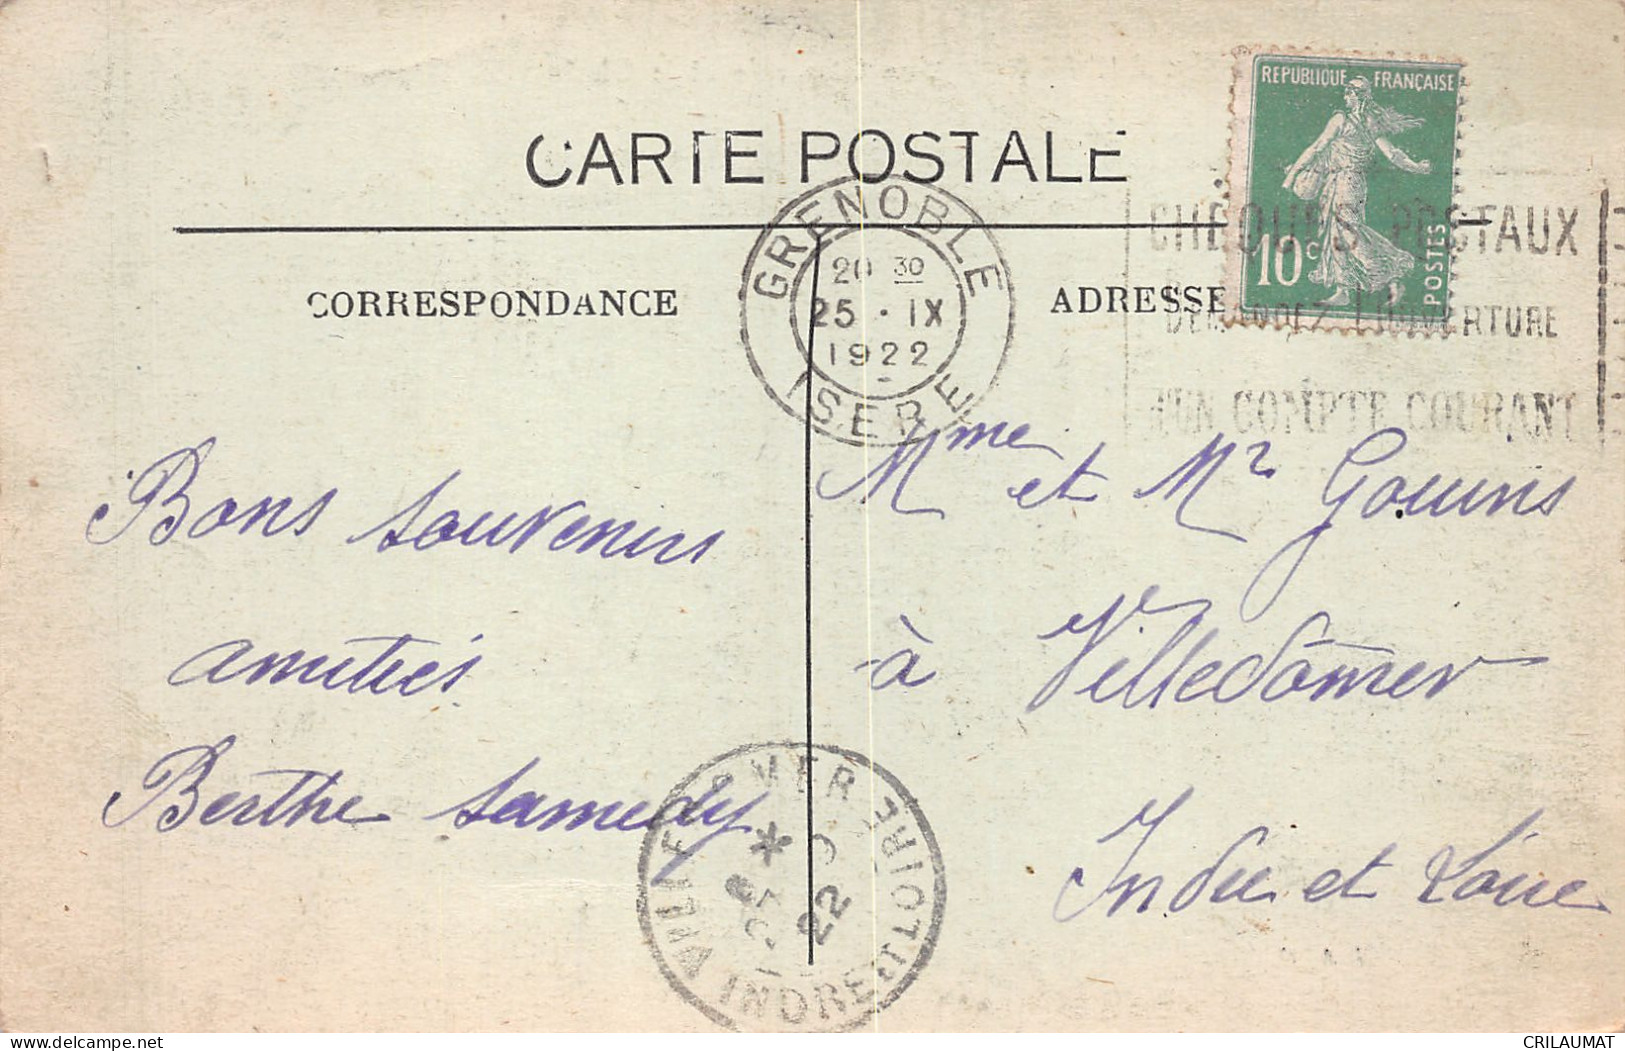 CARTE POSTALE
REPUBLIQUE FRANÇAISE
10c
POSTES
GRENOBLE
20 30
25 · IX
1922
ISERE
CHEQUES POSTAUX
DEMANDEZ L'OUVERTURE
D'UN COMPTE COURANT
CORRESPONDANCE
ADRESSE
Bons souvenirs
amitiés
Berthe Samedy
Mme et Mr Gouins
à Villedômer
Indre et Loire
VILLEDOMER
22
INDRE ET LOIRE
CRILAUMAT